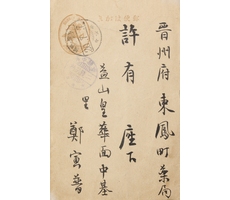 晋州府東鳳町藥局
許有座下
益山皇華面中基
里
鄭寅普